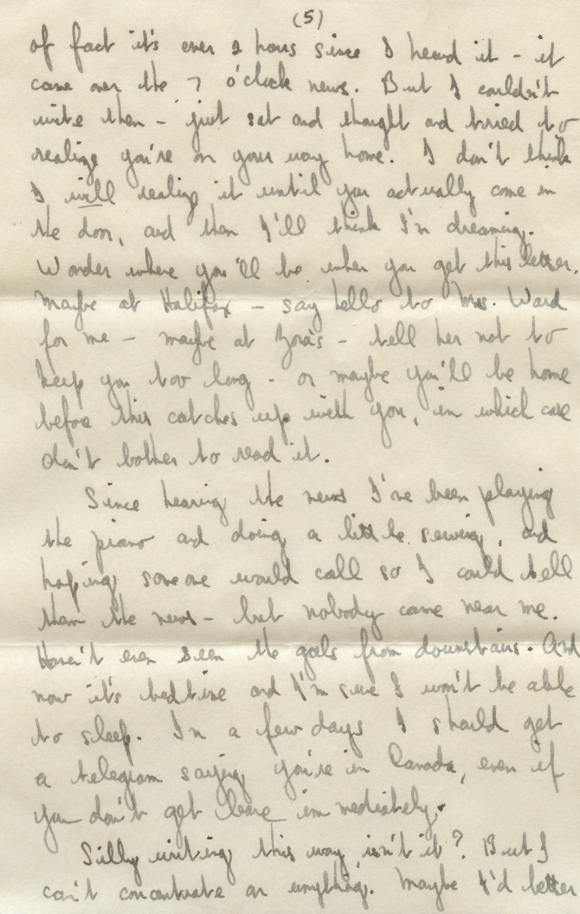 (5)
of fact it's over 2 hours since I heard it - it
came over the 7 o'clock news. But I couldn't
write then - just sat and thought and tried to
realize you're on your way home. I don't think
I will realize it until you actually come in
the door, and then I'll think I'm dreaming.
Wonder where you'll be when you get this letter.
Maybe at Halifax - say hello to Mrs. Ward
for me - maybe at Zora's - tell her not to
keep you too long - or maybe you'll be home
before this catches up with you, in which case
don't bother to read it.
Since hearing the news I've been playing
the piano and doing a little sewing, and
hoping someone would call so I could tell
them the news - but nobody came near me.
Haven't even seen the gals from downstairs. And
now it's bedtime and I'm sure I won't be able
to sleep. In a few days I should get
a telegram saying you're in Canada, even if
you don't get leave immediately.
Silly writing this way, isn't it? But I
can't concentrate on anything. Maybe I'd better